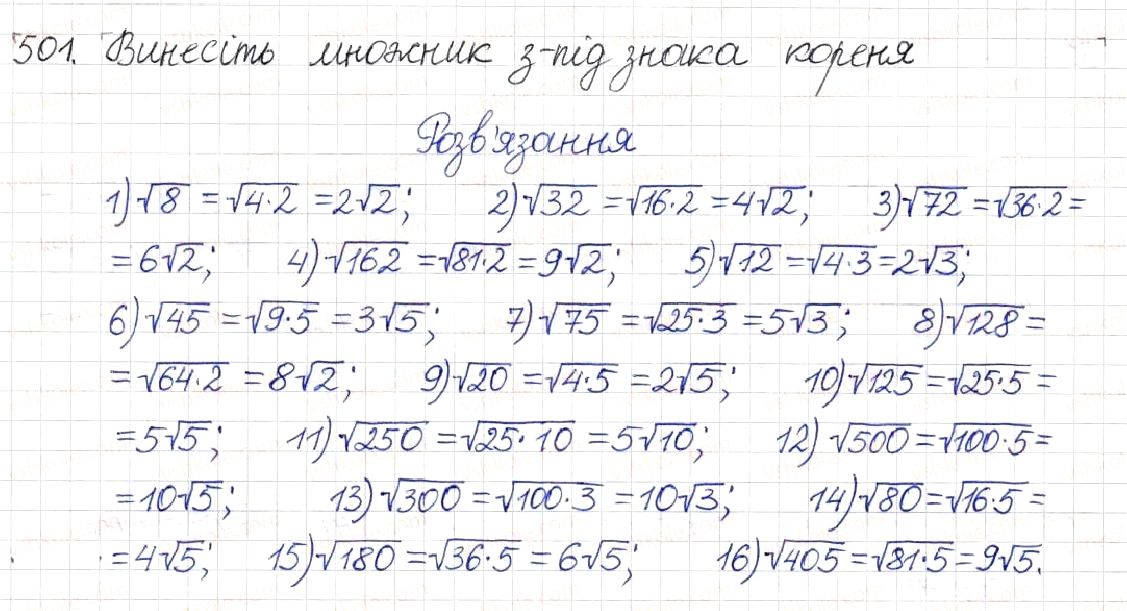 501. Винесіть множник з-під знака кореня
Розв'язання
1) √8 = √4·2 = 2√2; 2) √32 = √16·2 = 4√2; 3) √72 = √36·2 =
= 6√2; 4) √162 = √81·2 = 9√2; 5) √12 = √4·3 = 2√3;
6) √45 = √9·5 = 3√5; 7) √75 = √25·3 = 5√3; 8) √128 =
= √64·2 = 8√2; 9) √20 = √4·5 = 2√5; 10) √125 = √25·5 =
= 5√5; 11) √250 = √25·10 = 5√10; 12) √500 = √100·5 =
= 10√5; 13) √300 = √100·3 = 10√3; 14) √80 = √16·5 =
= 4√5; 15) √180 = √36·5 = 6√5; 16) √405 = √81·5 = 9√5.